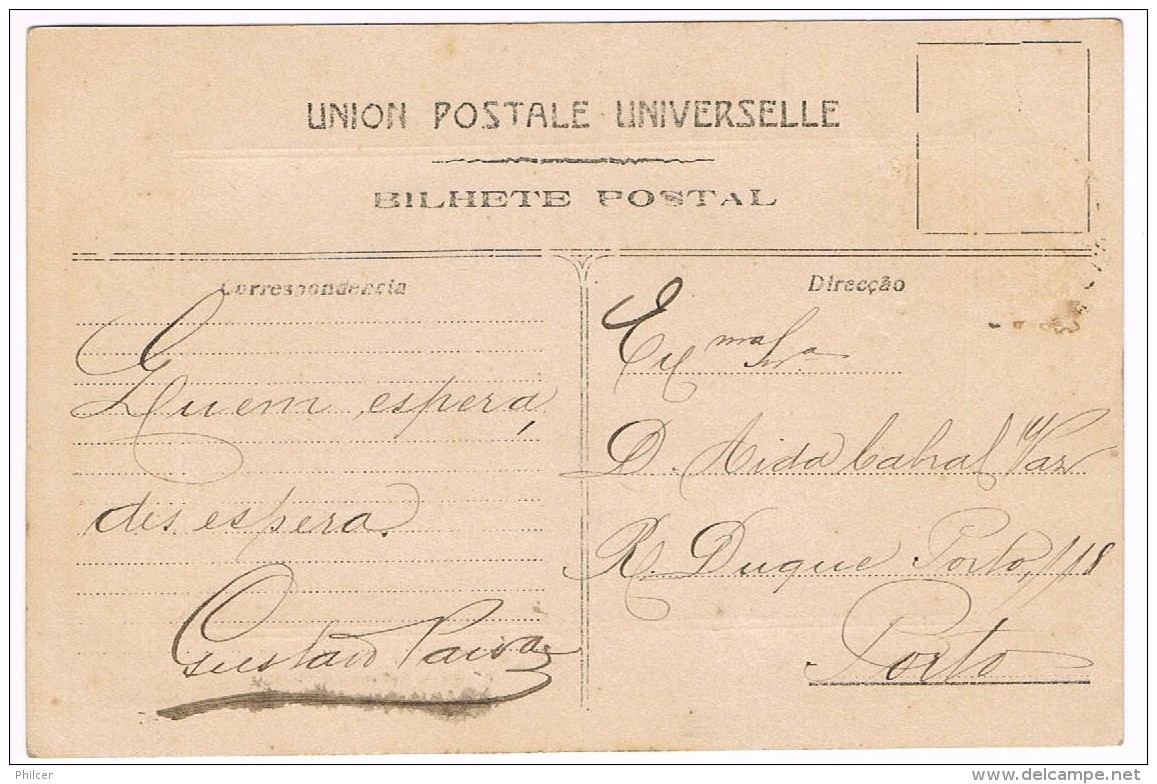 UNION POSTALE UNIVERSELLE
BILHETE POSTAL
Correspondencia
Quem espera,
desespera.
Gustavo Paiva
Direcção
Exma Sra
D. Aida Cabral Vaz
R. Duque Porto, 118
Porto
Philcer
delcampe.net